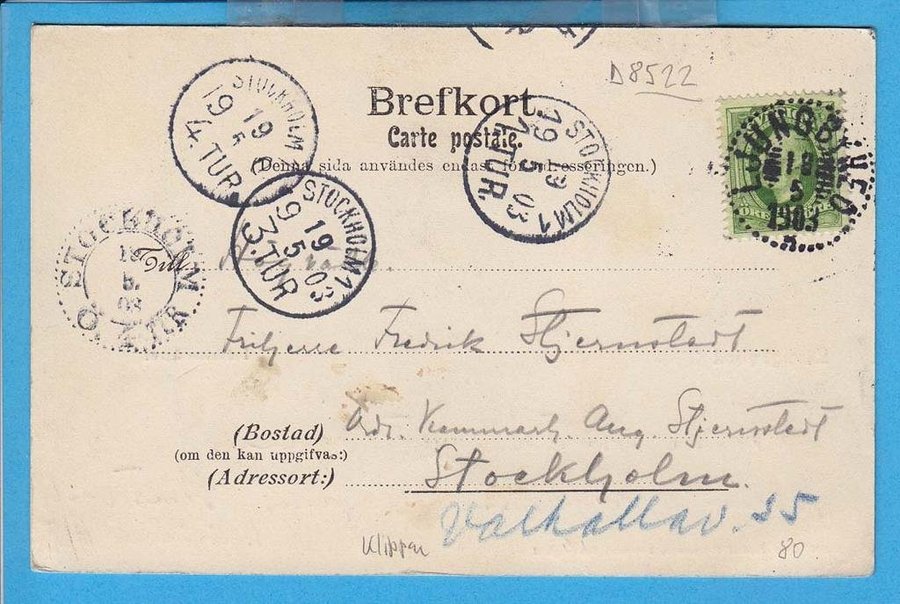 D8522
Brefkort.
Carte postale.
(Denna sida användes endast för adresseringen.)
STOCKHOLM
19 5
19
4. TUR.
STOCKHOLM 1
19 5 03
19
1. TUR.
STOCKHOLM 1
19 5 03
19
3. TUR
LJUNGBYHED
18
5
1903
STOCKHOLM
19
5.
03
TUR
Till
Friherre Fredrik Stjernstedt
(Bostad) Adr. Kammarh. Aug. Stjernstedt
(om den kan uppgifvas:)
(Adressort:) Stockholm.
Valhallav. 25
Klippan
80.